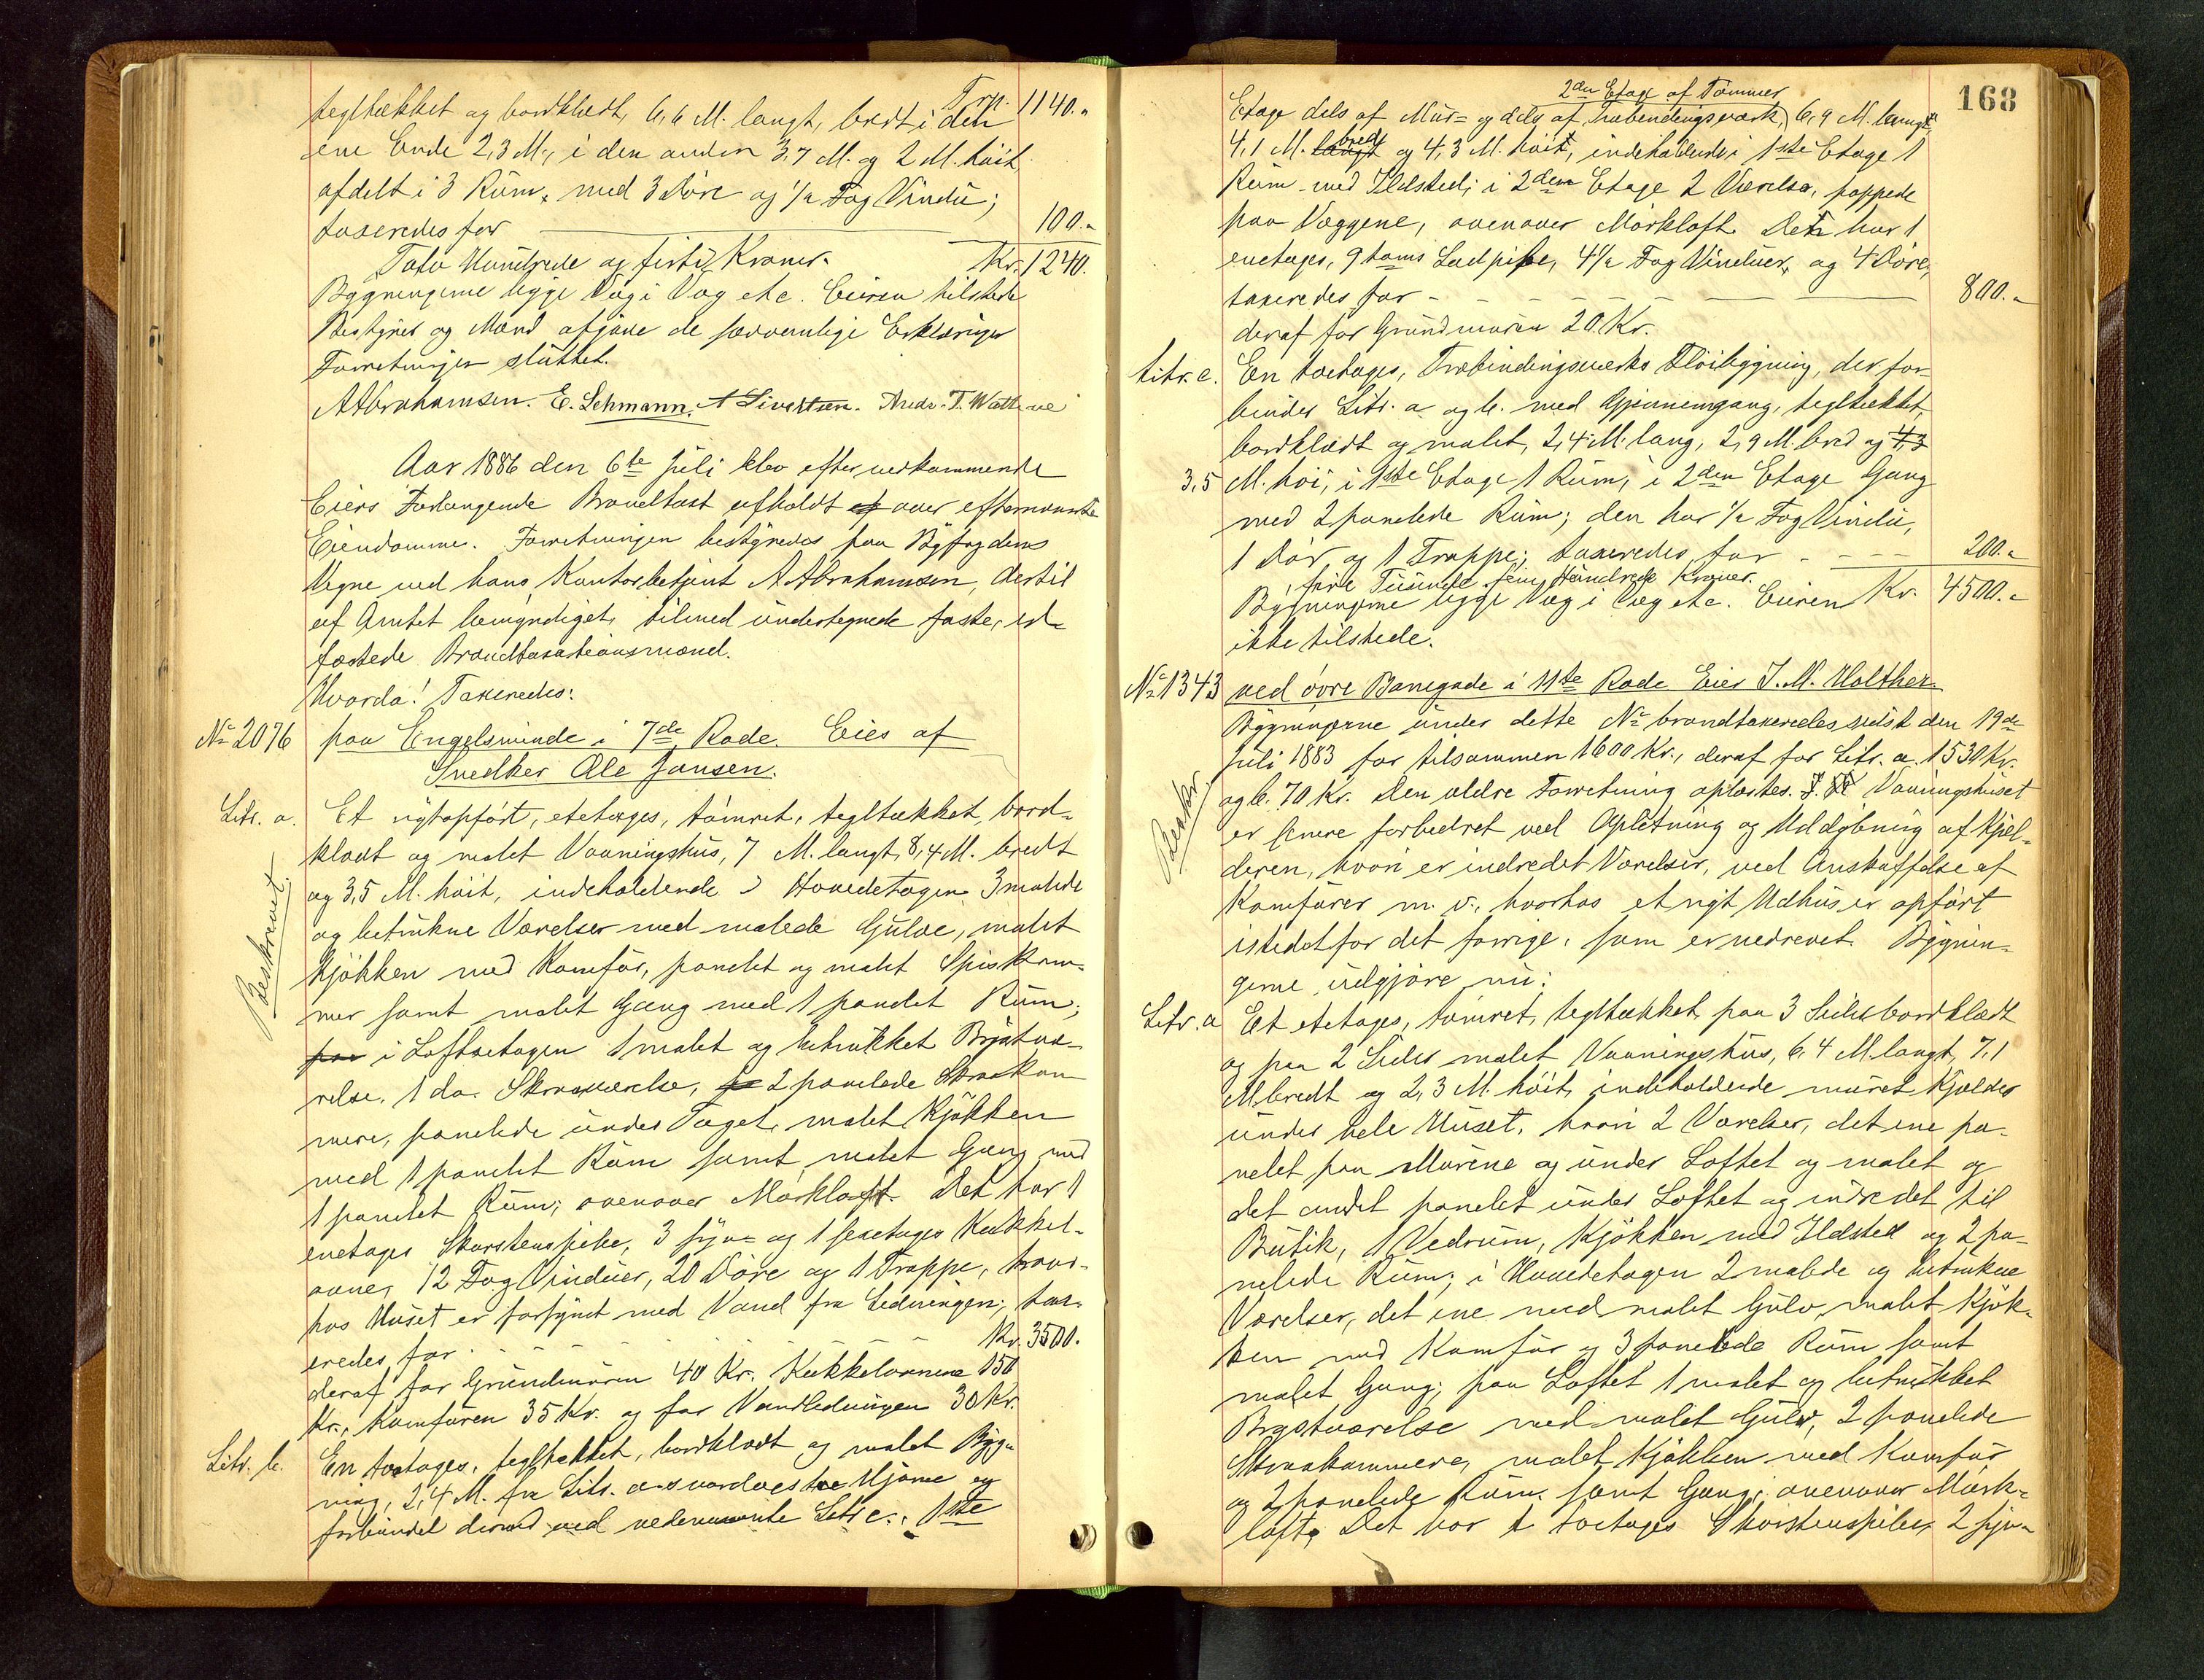 Trp. 1140.„
tegltækket og bordklædt, 6,6 M. langt, bredt i den
ene Ende 2,3 M., i den anden 3,7 M. og 2 M. höit,
afdelt i 3 Rum, med 3 Döre og 1/2 Fag Vindu;
taxeredes for 100.„
Tolv Hundrede og firti Kroner. Kr. 1240.
Bygningerne ligge Væg i Væg etc. Eieren tilstede
Bestyrer og Mænd afgave de sædvanlige Erklæringer
Forretningen sluttet.
A Abrahamsen. E. Lehmann. A Sivertsen. Andr. T. Watt
Aar 1886 den 6te Juli blev efter vedkommende
Eiers Forlangende Brandtaxt afholdt af over efternævnte
Eiendomme. Forretningen bestyredes paa Byfogdens
Vegne ved hans Kontorbetjent A Abrahamsen, dertil
af Amtet bemyndiget, tilmed undertegnede faste, ed-
fæstede Brandtaxationsmænd.
Hvorda! Taxeredes:
No 2076 paa Engelsminde i 7de Rode. Eies af
Snedker Ole Jansen.
Litr. a. Et nyt opfört, etetages, tömret, tegltækket, bord-
klædt og malet Vaaningshus, 7 M. langt, 8,4 M. bredt
og 3,5 M. höit, indeholdende i Hovedetagen 3 malede
og betrukne Værelser med malede Gulve, malet
Kjökken med Komfur, panelet og malet Spiskam-
mer samt malet Gang med 1 panelet Rum;
Beskrevet.
paa i Loftsetagen 1 malet og betrukket Brystvæ-
relse, 1 do. Skraaværelse, 2 panelede Skraakam
mere, panelede under Taget, malet Kjökken
med 1 panelet Rum samt malet Gang med
1 panelet Rum; ovenover Mörkloft. Det har 1
enetages Skorstenspibe, 3 syv- og 1 sexetages Kakkel-
ovne, 12 Fag Vinduer, 20 Döre og 1 Trappe, hvor-
hos Huset er forsynet med Vand fra Ledningen; tax-
eredes for Kr. 3500.
deraf for Grundmuren 40 Kr. Kakkelovnene 150
Kr., Komfuren 35 Kr. og for Vandledningen 30 Kr.
Litr. b. En toetages, tegltækket, bordklædt og malet Byg-
ning, 2,4 M. fra Litr. a's nordvestre Hjörne og
forbundet dermed ved nedennævnte Litr c.; 1ste
168
2den Etage af Tömmer
Etage dels af Mur- og dels af Træbindingsværk, 6,9 M. langt,
4,1 M. langt bredt og 4,3 M. höit, indeholdende i 1ste Etage 1
Rum med Ildsted; i 2den Etage 2 Værelser, pappede
paa Væggene, ovenover Mörkloft. Det har 1
enetages, 9 toms Ladpibe, 4 1/2 Fag Vinduer, og 4 Döre;
taxeredes for 800.„
deraf for Grundmuren 20 Kr.
Litr. c. En toetages, Træbindingsværks Flöibygning, der for-
binder Litr. a og b. med Gjennemgang, tegltækket,
bordklædt og malet, 2,4 M. lang, 2,9 M. bred og 4,3
3,5 M. höi, i 1ste Etage 1 Rum, i 2den Etage Gang
med 2 panelede Rum; den har 1/2 Fag Vindu,
1 Dör og 1 Trappe; taxeredes for 200.„
fire Tusinde fem Hundrede Kroner.
Bygningerne ligge Væg i Væg etc. Eieren Kr. 4500.„
ikke tilstede.
No 1343 ved övre Banegade i 11te Rode Eier J. M. Holther
Bygningerne under dette No brandtaxeredes sidst den 19de
Juli 1883 for tilsammen 1600 Kr., deraf for Litr. a. 1530 Kr.
og b. 70 Kr. Den ældre Forretning oplæstes. Vaaningshuset
er senere forbedret ved Opletning og Uddybning af Kjæl-
deren, hvori er indredet Værelser, ved Anskaffelse af
Komfurer m. v., hvorhos et nyt Udhus er opfört
istedetfor det forrige, som er nedrevet. Bygnin-
gerne udgjöre nu:
Litr. a Et etetages, tömret, tegltækket, paa 3 Sider bordklædt
og paa 2 Sider malet Vaaningshus, 6,4 M. langt, 7,1
M. bredt og 2,3 M. höit, indeholdende muret Kjælder
under hele Huset, hvori 2 Værelser, det ene pa-
nelet paa Murene og under Loftet og malet og
det andet panelet under Loftet og indredet til
Butik, 1 Vedrum, Kjökken med Ildsted og 2 pa-
nelede Rum; i Hovedetagen 2 malede og betrukne
Værelser, det ene med malet Gulv, malet Kjök-
ken med Komfur og 3 panelede Rum samt
malet Gang; paa Loftet 1 malet og betrukket
Brystværelse med malet Gulv, 2 panelede
Skraakammere, malet Kjökken med Komfur
og 2 panelede Rum samt Gang; ovenover Mörk-
loft. Det har 1 toetages Skorstenspibe, 2 syv-